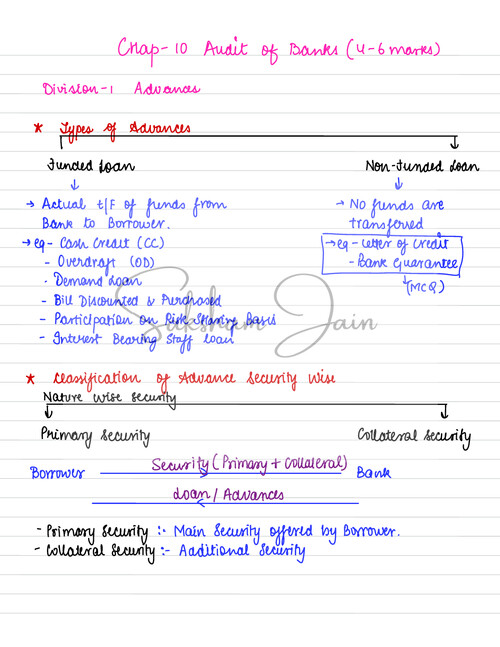 Chap-10 Audit of Banks (4-6 marks)
Division-1 Advances
* Types of Advances
Funded Loan
Non-Funded Loan
→ Actual t/f of funds from
Bank to Borrower.
→ eg - Cash Credit (CC)
- Overdraft (OD)
- Demand Loan
- Bill Discounted & Purchased
- Participation on Risk Sharing Basis
- Interest Bearing Staff Loan
→ No funds are
transferred
→ eg - Letter of Credit
- Bank Guarantee
(MCQ)
Saksham Jain
* Classification of Advance Security Wise
Nature wise security
Primary Security
Collateral Security
Borrower
Security (Primary + Collateral)
Bank
Loan / Advances
- Primary Security :- Main Security offered by Borrower.
- Collateral Security :- Additional Security